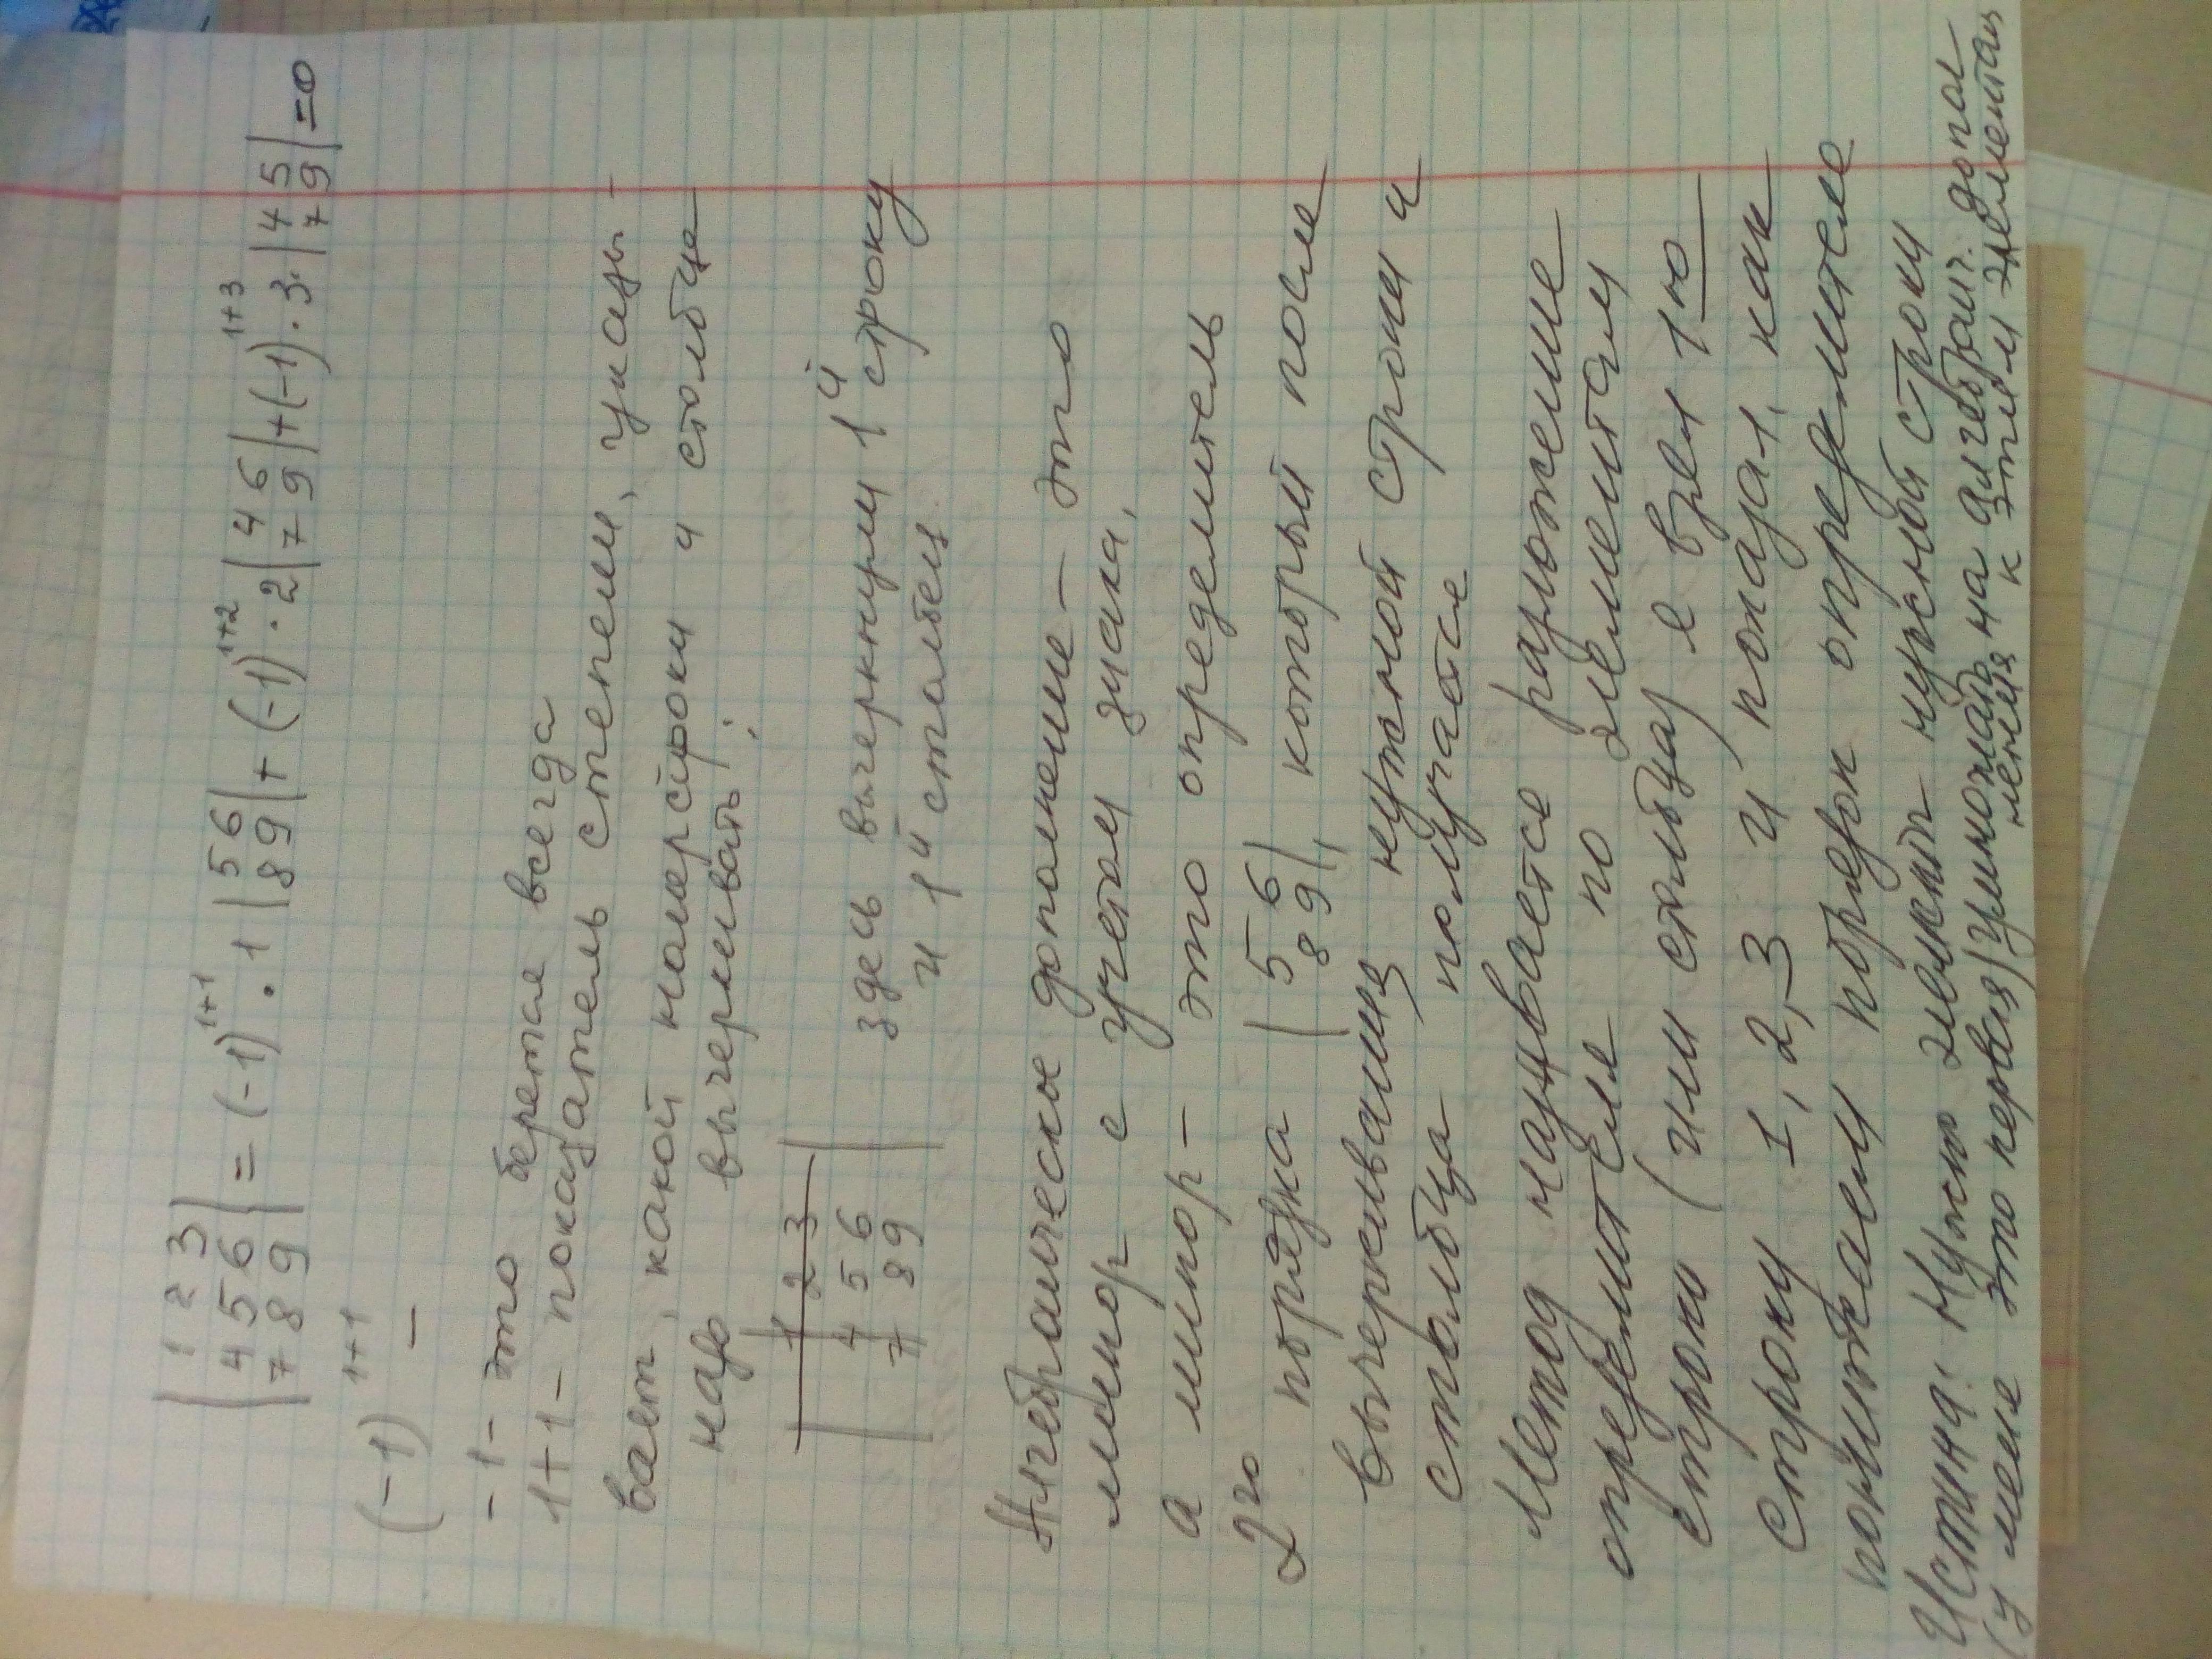 |1 2 3|
|4 5 6| = (-1)¹⁺¹ · 1 |5 6| + (-1)¹⁺² · 2 |4 6| + (-1)¹⁺³ · 3 · |4 5| = 0
|7 8 9| |8 9| |7 9| |7 9|
(-1)¹⁺¹ –
-1- это берется всегда
1+1- показатель степени, указы-
вает, какой номер строки и столбца
надо вычеркивать:
1 2 3
4 5 6 здесь вычеркнули 1й строку
7 8 9 и 1й столбец
Алгебраическое дополнение – это
минор с учетом знака,
а минор – это определитель
2го порядка |5 6|, который после
|8 9|
вычеркивания нужной строки и
столбца получается
Метод называется разложение
определителя по элементам
строки (или столбца) я взял 1ю
строку 1, 2, 3 и показал, как
понижаем порядок определителя
Истина: Нужно элементы нужной строки
(у меня это первая) умножать на алгебраич. допол
нения к этим элементам